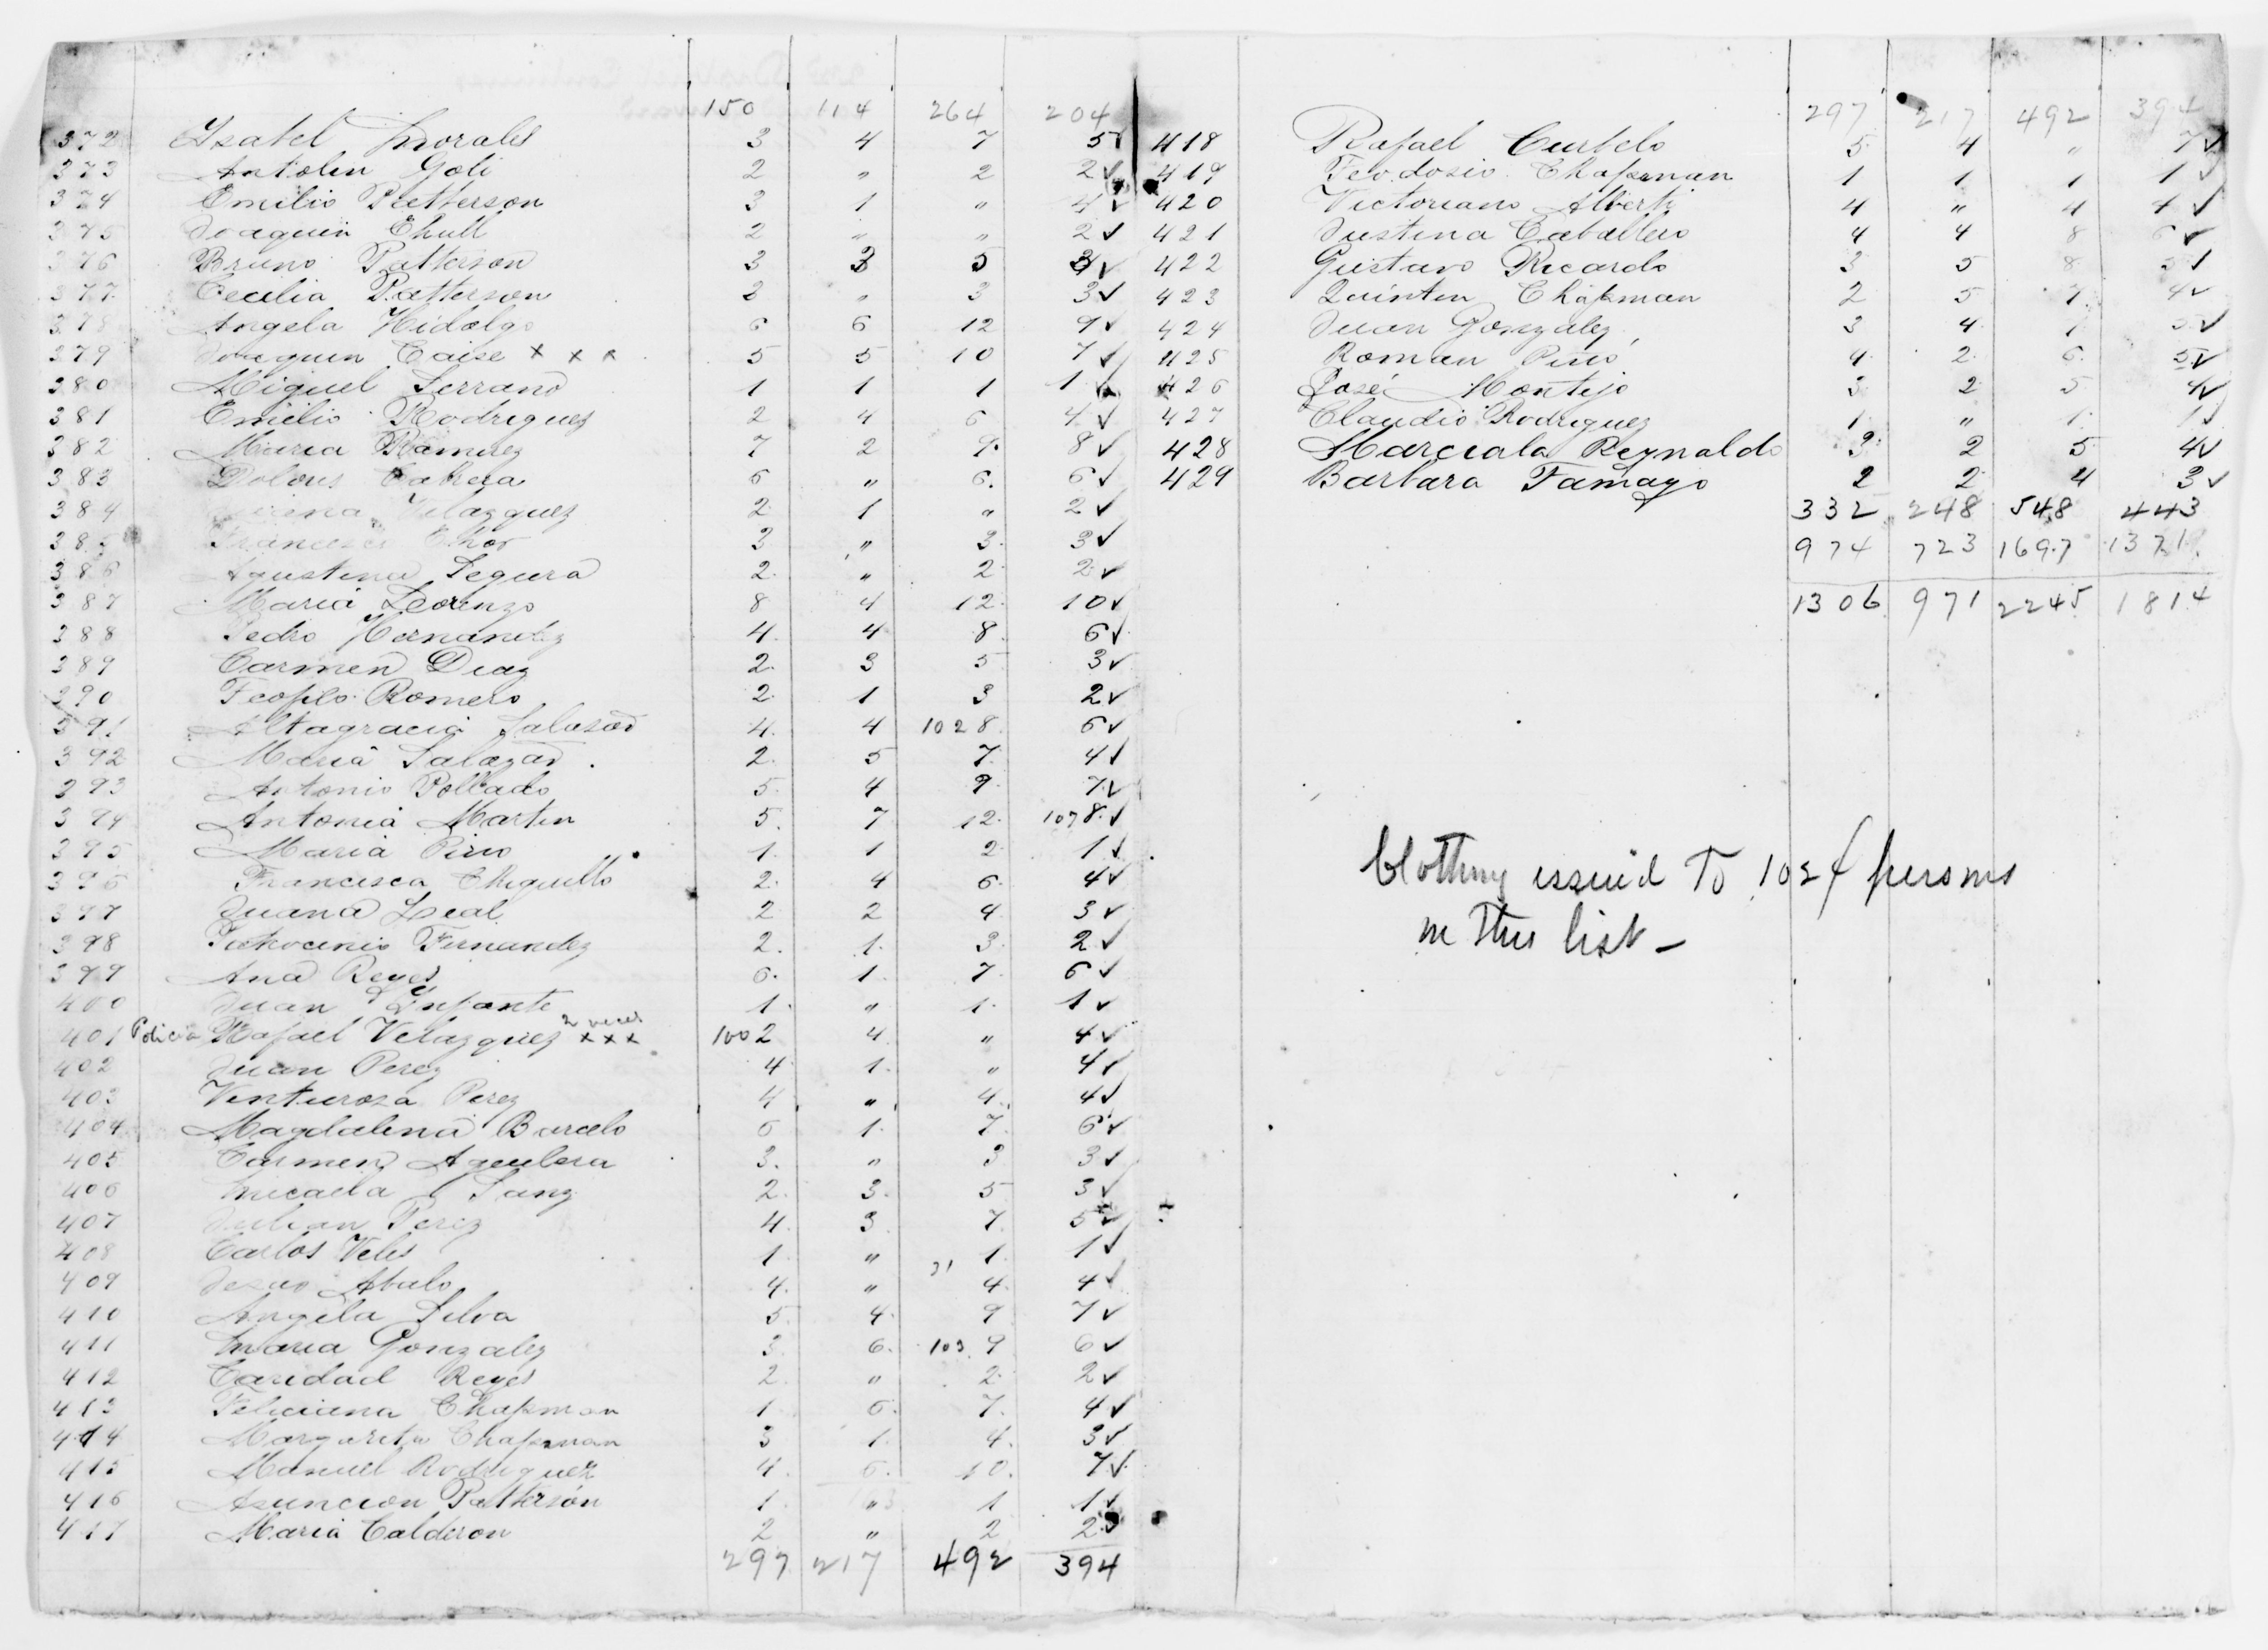 150 114 264 204
372 Isabel Morales 3 4 7 5✓
373 Antolin Goti 2 " 2 2✓
374 Emilio Patterson 3 1 " 4✓
375 Joaquin Chull 2 " " 2✓
376 Bruno Patterson 3 3 5 ✓
377 Cecilia Patterson 3 " 3 3✓
378 Angela Hidalgo 6 6 12 9✓
379 Joaquin Caise x x x 5 5 10 7✓
380 Miguel Serrano 1 1 1 1✓
381 Emilio Rodriguez 2 4 6 4✓
382 Maria Ramirez 7 2 9. 8✓
383 Dolores Cabrera 6 " 6. 6✓
384 Velazquez 2 1 " 2✓
385 3 " 3. 3✓
386 Agustina Segura 2. " 2 2✓
387 Maria Lorenzo 8 4 12. 10✓
388 Pedro Hernandez 4. 4 8. 6✓
389 Carmen Diaz 2. 3 5 3✓
390 Teofilo Romero 2. 1 3 2✓
391 Altagracia Salasar 4. 4 1028. 6✓
392 Maria Salazar. 2. 5 7. 4✓
393 Antonio Pollado 5. 4 9. 7✓
394 Antonia Martin 5. 7 12. 1078.✓
395 Maria Pino 1. 1 2 1✓
396 Francisca Chiquillo 2. 4 6. 4✓
397 Juana Leal 2 2 4 3✓
398 Patrocinio Fernandez 2. 1. 3. 2✓
399 Ana Reyes 6. 1. 7. 6✓
400 Juan Infante 1. " 1. 1✓
401 Policia Rafael Velazquez 2 veces xxx 1002 4 " 4✓
402 Juan Perez 4 1. " 4✓
403 Venturosa Perez 4 " 4. 4✓
404 Magdalena Barcelo 6 1. 7. 6✓
405 Carmen Aguilera 3. " 3 3✓
406 Micaela Sanz 2. 3. 5 3✓
407 Julian Perez 4. 3. 7. 5✓
408 Carlos Veles 1. " 1. 1✓
409 Abalo 4. " 4. 4✓
410 Angela Silva 5. 4. 9 7✓
411 Maria Gonzalez 3. 6. 103 9 6✓
412 Caridad Reyes 2. " 2. 2✓
413 Feliciana Chapman 1. 6. 7. 4✓
414 Margarita Chapman 3 1. 4. 3✓
415 Manuel Rodriguez 4. 6. 10. 7✓
416 Asuncion Patterson 1. " 1 1✓
417 Maria Calderon 2 " 2 2✓
297 217 492 394
297 217 492 394
418 Rafael Curbelo 5 4 " 7✓
419 Teodosio Chapman 1 1 1 1✓
420 Victoriano Alberti 4 " 4 4✓
421 Justina Caballero 4 4 8 6✓
422 Gustavo Ricardo 3 5 8 5✓
423 Quintin Chapman 2 5 7. 4✓
424 Juan Gonzalez 3 4 7 5✓
425 Roman Pino 4. 2. 6. 5✓
426 José Montijo 3 2 5 4✓
427 Claudio Rodriguez 1. " 1. 1✓
428 Marciala Reynaldo 3. 2 5 4✓
429 Barbara Tamayo 2 2 4 3✓
332 248 548 443
974 723 1697 1371
1306 971 2245 1814
Clothing issued to 1024 persons
in this list—